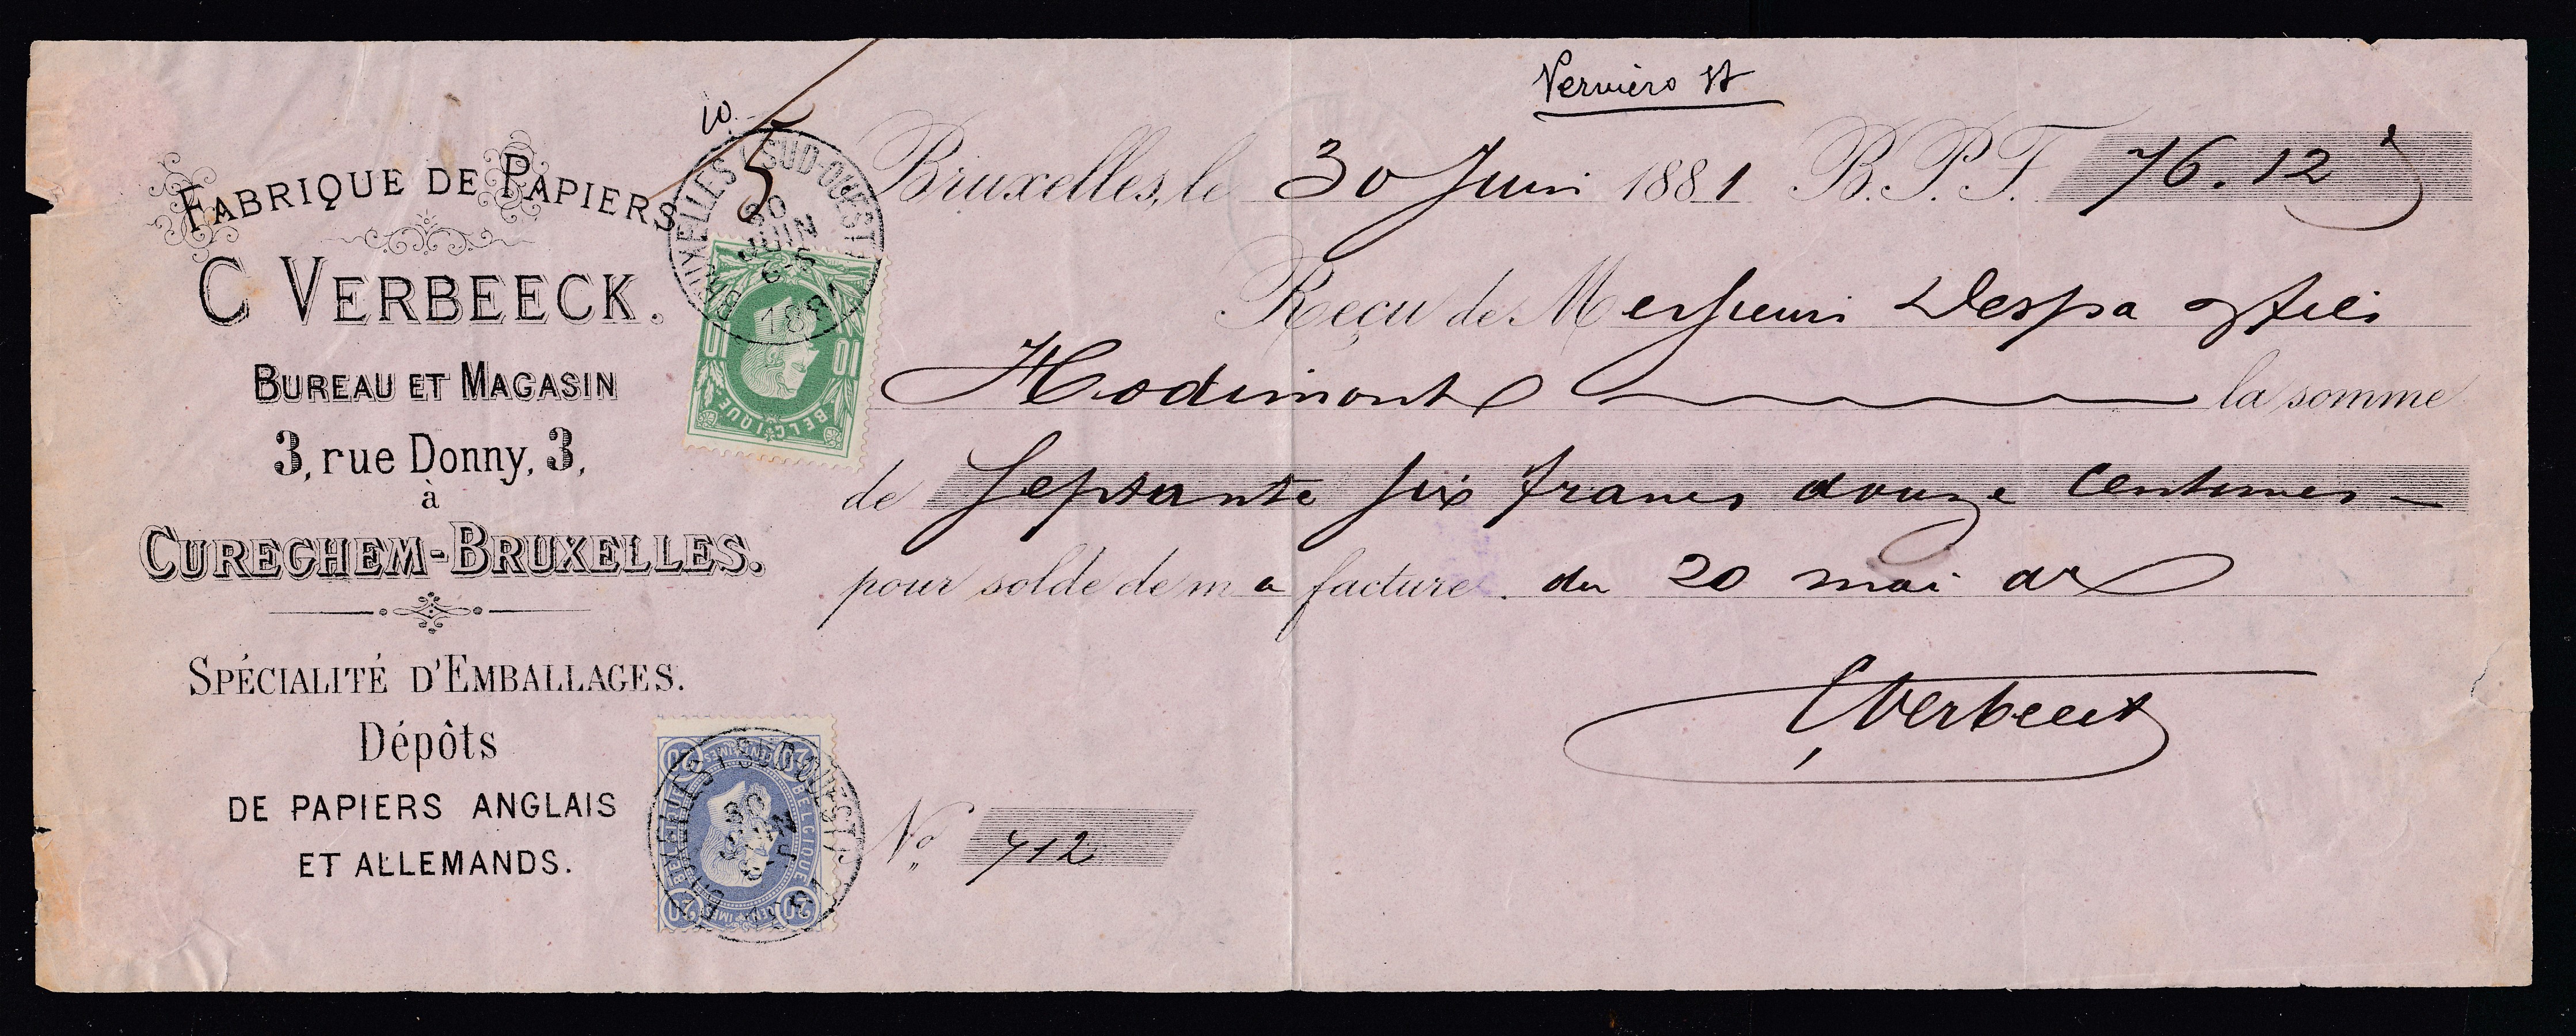 Verviers St
10
5
FABRIQUE DE PAPIERS
C VERBEECK.
BUREAU ET MAGASIN
3, rue Donny, 3,
à
CUREGHEM-BRUXELLES.
SPÉCIALITÉ D'EMBALLAGES.
Dépôts
DE PAPIERS ANGLAIS
ET ALLEMANDS.
BRUXELLES (SUD-OUEST)
30
JUIN
6-S
1881
10 10
BELGIQUE
Bruxelles, le 30 Juin 1881 B.P.F. 76.12
Reçu de Messieurs Despa & fils
Hodimont la somme
de Septante six francs douze centimes
pour solde de ma facture du 20 mai dr
CVerbeeck
No 712
BRUXELLES (SUD-OUEST)
30
JUIN
1881
20 CENTIMES 20
BELGIQUE
20 CENTIMES 20